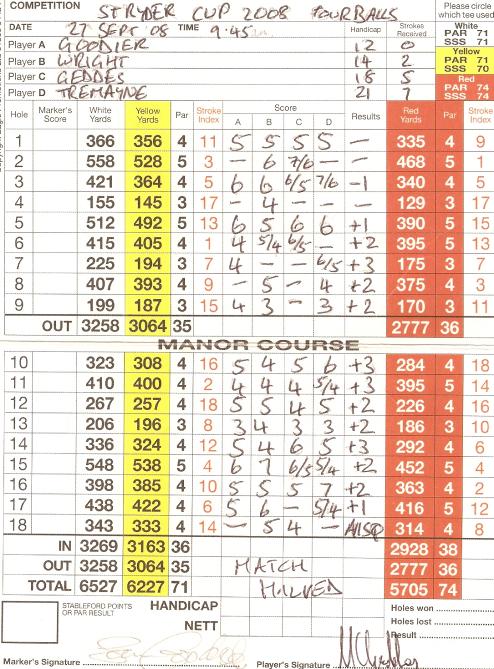 COMPETITION STRYDER CUP 2008 FOURBALLS Please circle which tee used
DATE 27 SEPT 08 TIME 9:45am Handicap Strokes Received
White PAR 71 SSS 71
Player A GOODIER 12 0
Yellow PAR 71 SSS 70
Player B WRIGHT 14 2
Player C GEDDES 18 5
Red PAR 74 SSS 74
Player D TREMAYNE 21 7
Hole Marker's Score White Yards Yellow Yards Par Stroke Index Score A B C D Results Red Yards Par Stroke Index
1 366 356 4 11 5 5 5 5 — 335 4 9
2 558 528 5 3 — 6 7/6 — — 468 5 1
3 421 364 4 5 6 6 6/5 7/6 -1 340 4 5
4 155 145 3 17 — 4 — — — 129 3 17
5 512 492 5 13 6 5 6 6 +1 390 5 15
6 415 405 4 1 4 5/4 6/5 — +2 395 5 13
7 225 194 3 7 4 — — 6/5 +3 175 3 7
8 407 393 4 9 — 5 — 4 +2 375 4 3
9 199 187 3 15 4 3 — 3 +2 170 3 11
OUT 3258 3064 35 2777 36
MANOR COURSE
10 323 308 4 16 5 4 5 6 +3 284 4 18
11 410 400 4 2 4 4 4 5/4 +3 395 5 14
12 267 257 4 18 5 5 4 5 +2 226 4 16
13 206 196 3 8 3 4 3 3 +2 186 3 10
14 336 324 4 12 5 4 6 5 +3 292 4 6
15 548 538 5 4 6 7 6/5 5/4 +2 452 5 4
16 398 385 4 10 5 5 5 7 +2 363 4 2
17 438 422 4 6 5 6 — 5/4 +1 416 5 12
18 343 333 4 14 — 5 4 — A/SQ 314 4 8
IN 3269 3163 36 2928 38
OUT 3258 3064 35 MATCH 2777 36
TOTAL 6527 6227 71 HALVED 5705 74
STABLEFORD POINTS OR PAR RESULT HANDICAP Holes won
NETT Holes lost
Result
Marker's Signature Player's Signature